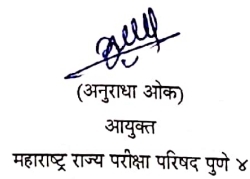 (अनुराधा ओक)
आयुक्त
महाराष्ट्र राज्य परीक्षा परिषद पुणे ४